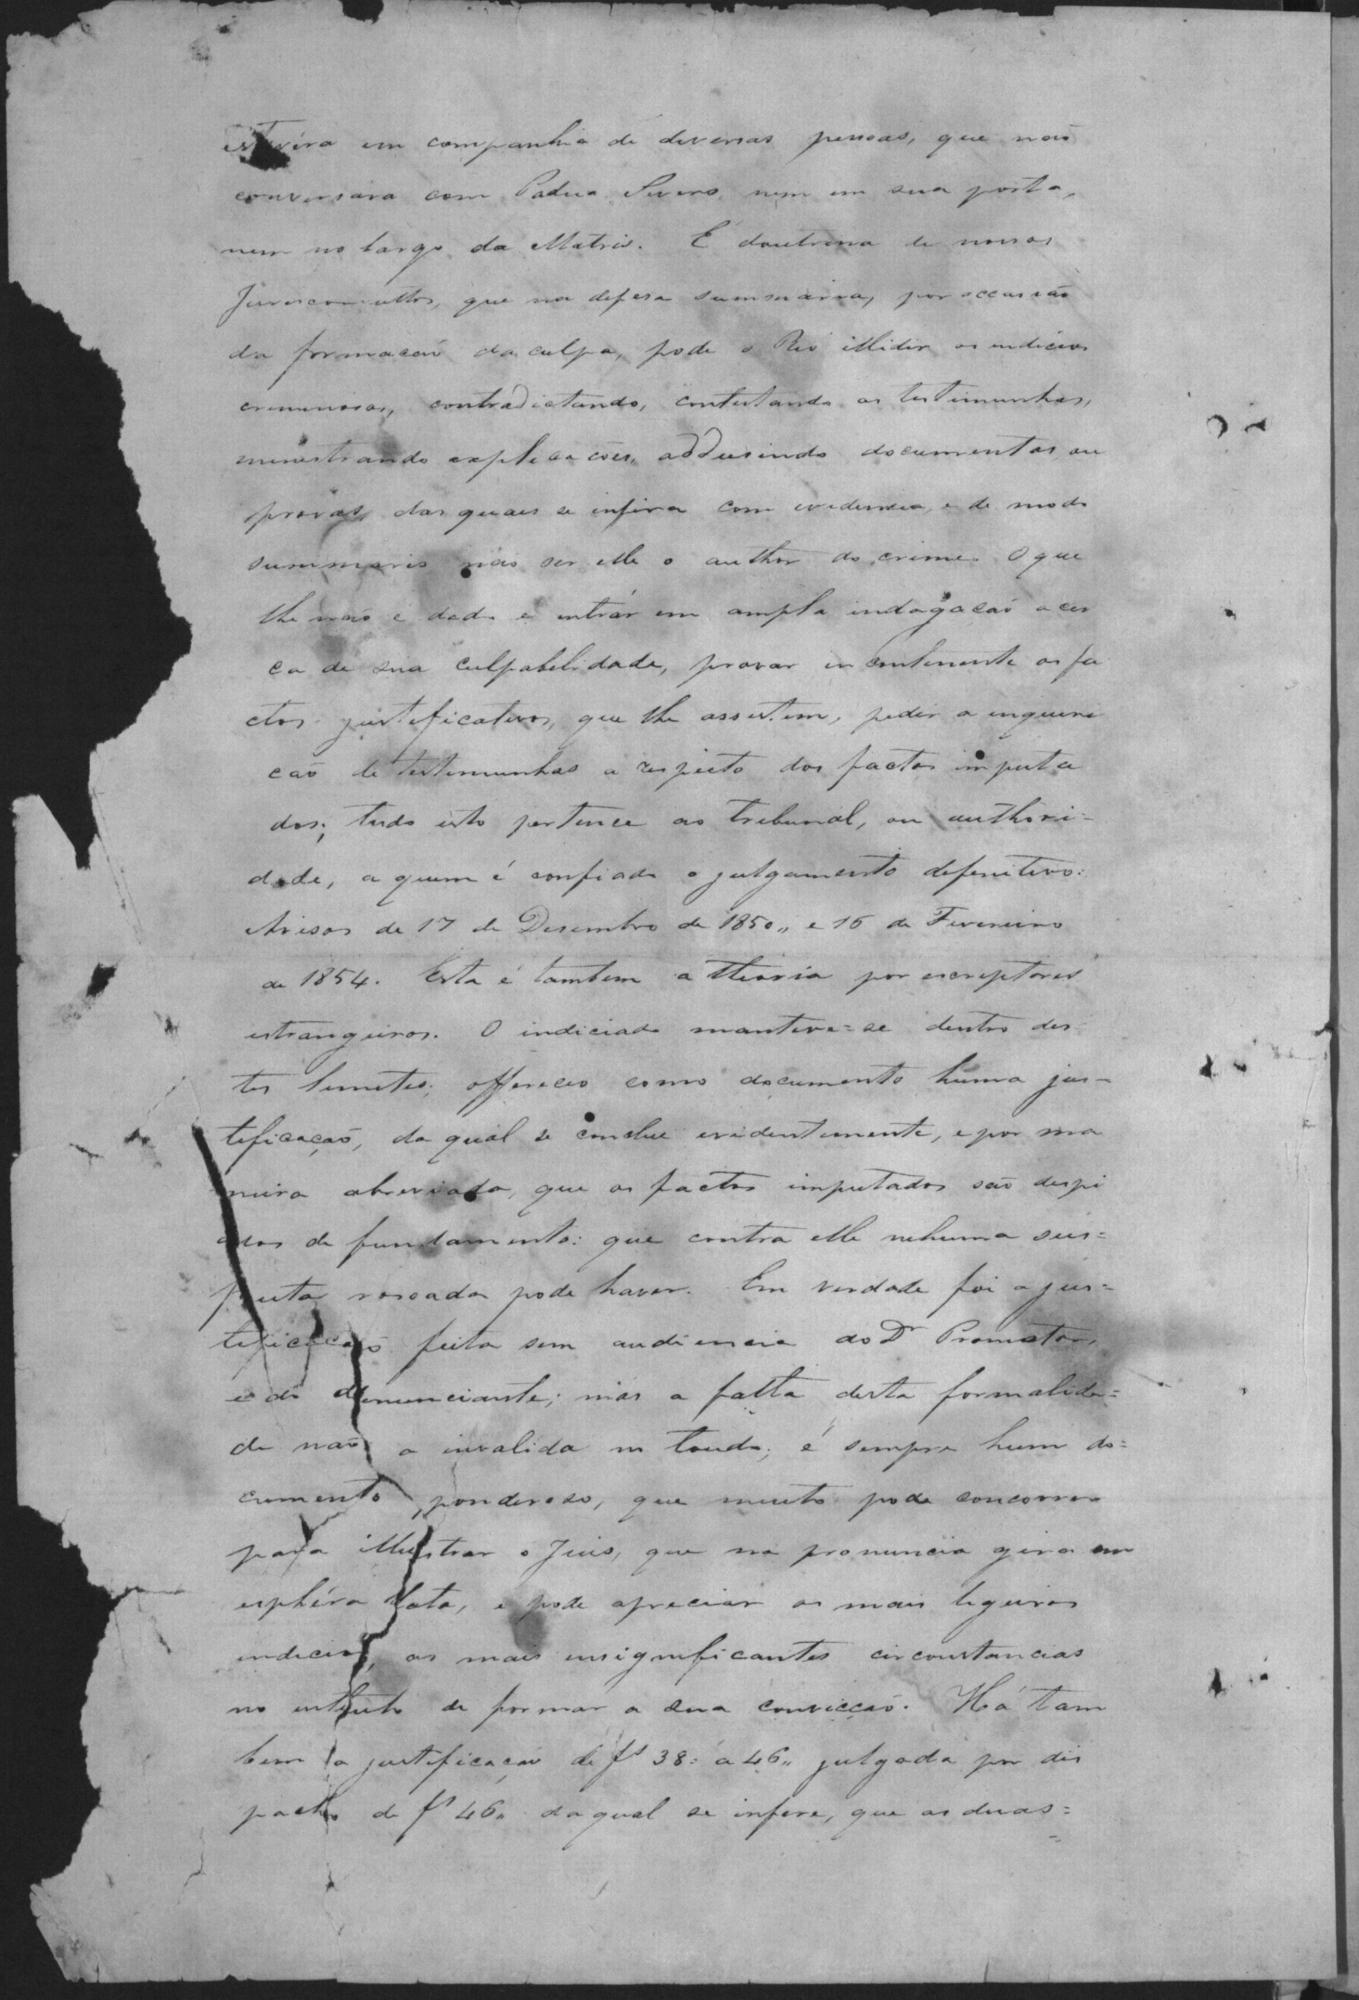 estivéra em companhia de diversas pessoas, que não
conversára com Padua Severo nem em sua porta,
nem no largo da Matris. É doutrina de nossos
Jurisconsultos, que na defesa summaria, por occasião
da formacaõ da culpa, pode o Réo illidir os indicios
criminosos, contradictando, contestando as testimunhas,
ministrando explicacões, addusindo documentos, ou
provas, das quaes se infira com evidencia, e de modo
summario não ser elle o author do crime. O que
lhe não é dado é entrár em ampla indagacaõ acer
ca de sua culpabilidade, provar incontinente os fa
ctos justificativos, que lhe assistem, pedir a inquiri
caõ de testimunhas a respeito dos factos imputa
dos; tudo isto pertence ao tribunal, ou authori=
dade, a quem é confiado o julgamento definitivo:
Avisos de 17 de Desembro de 1850,, e 16 de Fevereiro
de 1854. Esta é tambem a theoria por escriptores
estrangeiros. O indiciado manteve=se dentro des
tes limites; offereceo como documento huma jus=
tificaçaõ, da qual se conclue evidentemente, e por ma
neira abreviada, que os factos imputados são despi
dos de fundamento: que contra elle nehuma sus=
peita rasoada pode haver. Em verdade foi a jus=
tificacaõ feita sem audiencia do Dr Promotor,
e do denunciante; mas a falta desta formalida=
de naõ a invalida in totum; é sempre hum do=
cumento ponderoso, que muito pode concorrer
para illustrar o Juis, que na pronuncia gira em
esphéra lata, e pode apreciar os mais ligeiros
indicios, as mais insignificantes circonstancias
no intuito de formar a sua convicçaõ. Há tam
bem a justificaçaõ de fs 38: a 46,, julgada por dis
pacho de fs 46,, da qual se infere, que as duas=